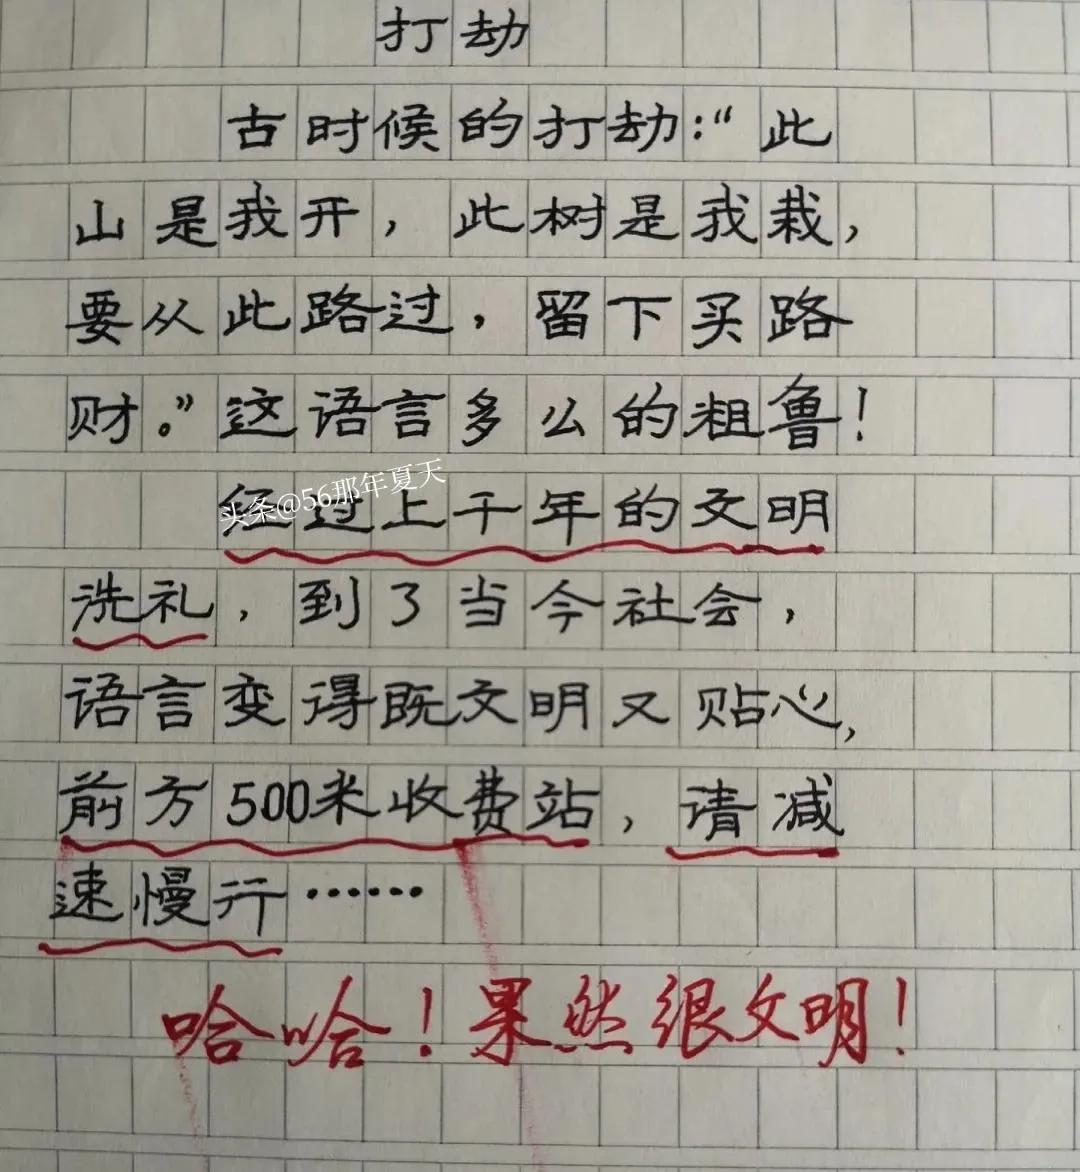 打劫
古时候的打劫:“此
山是我开，此树是我栽，
要从此路过，留下买路
财。”这语言多么的粗鲁！
经过上千年的文明
头条@56那年夏天
洗礼，到了当今社会，
语言变得既文明又贴心，
前方500米收费站，请减
速慢行……
哈哈！果然很文明！